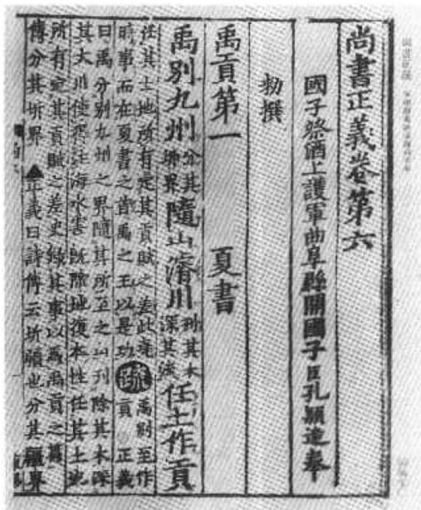 尚書正義卷第六
國子祭酒上護軍曲阜縣開國子臣孔穎達奉
勑撰
禹貢第一 夏書
禹別九州 分其圻界 隨山濬川 刊其木深其流 任土作貢
任其土地所有定其貢賦之差此堯
時事而在夏書之首禹之王以是功 疏 禹別至作貢 正義
曰禹分別九州之界隨其所至之山刊除其木深
其大川使得注海水害既除地復本性任其土地
所有定其貢賦之差史錄其事以為禹貢之篇
傳分其圻界 正義曰詩傳云圻疆也分其疆界